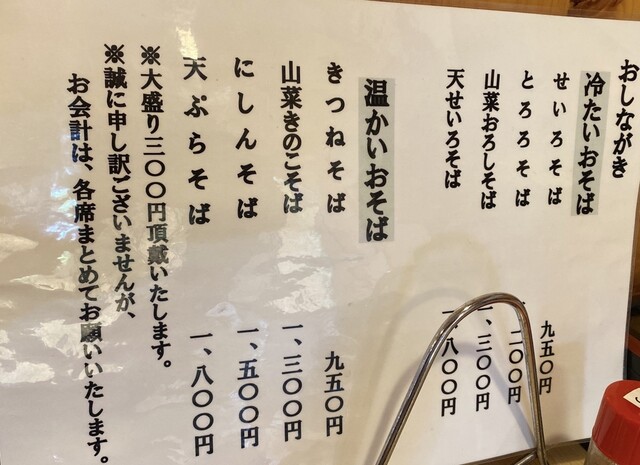 おしながき
冷たいおそば
せいろそば 九五〇円
とろろそば 一、二〇〇円
山菜おろしそば 一、三〇〇円
天せいろそば 一、八〇〇円
温かいおそば
きつねそば 九五〇円
山菜きのこそば 一、三〇〇円
にしんそば 一、五〇〇円
天ぷらそば 一、八〇〇円
※大盛り三〇〇円頂戴いたします。
※誠に申し訳ございませんが、
お会計は、各席まとめてお願いいたします。